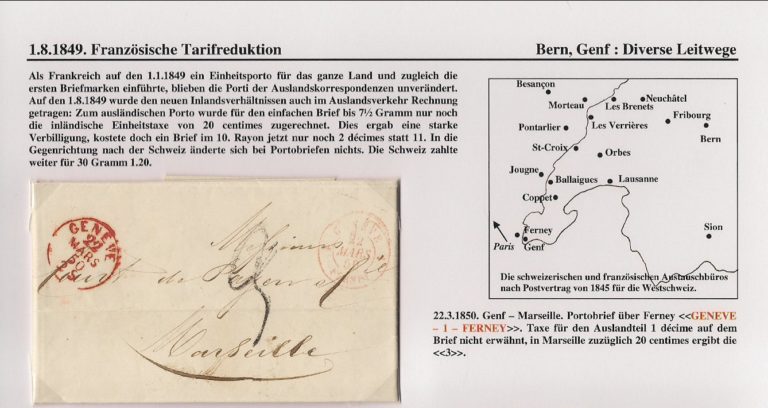 1.8.1849. Französische Tarifreduktion
Bern, Genf : Diverse Leitwege
Als Frankreich auf den 1.1.1849 ein Einheitsporto für das ganze Land und zugleich die
ersten Briefmarken einführte, blieben die Porti der Auslandskorrespondenzen unverändert.
Auf den 1.8.1849 wurde den neuen Inlandsverhältnissen auch im Auslandsverkehr Rechnung
getragen: Zum ausländischen Porto wurde für den einfachen Brief bis 7½ Gramm nur noch
die inländische Einheitstaxe von 20 centimes zugerechnet. Dies ergab eine starke
Verbilligung, kostete doch ein Brief im 10. Rayon jetzt nur noch 2 décimes statt 11. In die
Gegenrichtung nach der Schweiz änderte sich bei Portobriefen nichts. Die Schweiz zahlte
weiter für 30 Gramm 1.20.
Besançon
Morteau
Les Brenets
Neuchâtel
Fribourg
Les Verrières
Pontarlier
Bern
St-Croix
Orbes
Jougne
Ballaigues
Lausanne
Coppet
Ferney
Sion
Paris
Genf
Die schweizerischen und französischen Austauschbüros
nach Postvertrag von 1845 für die Westschweiz.
GENEVE
22
MARS
50
Messieurs
MARS
de
3
Marseille
22.3.1850. Genf – Marseille. Portobrief über Ferney <<GENEVE
– 1 – FERNEY>>. Taxe für den Auslandteil 1 décime auf dem
Brief nicht erwähnt, in Marseille zuzüglich 20 centimes ergibt die
<<3>>.